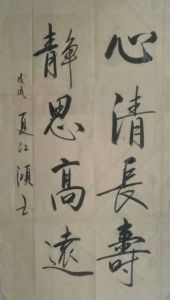 心清長壽
静思高遠
戊戌 夏江頌书